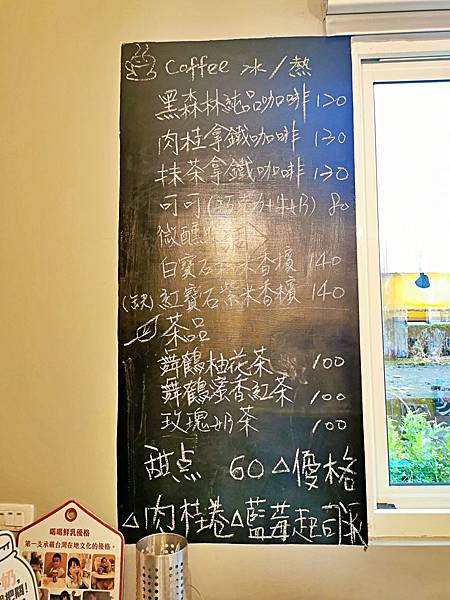 Coffee 冰/熱
黑森林純品咖啡 120
肉桂拿鐵咖啡 130
抹茶拿鐵咖啡 130
可可(巧克力+牛奶) 80
微醺
白寶石 米香檳 140
(缺) 紅寶石紫米香檳 140
茶品
舞鶴柚花茶 100
舞鶴蜜香紅茶 100
玫瑰奶茶 100
甜点 60 △優格
△肉桂捲△藍莓起司派
喝喝鮮乳優格
第一支承載台灣在地文化的優格。